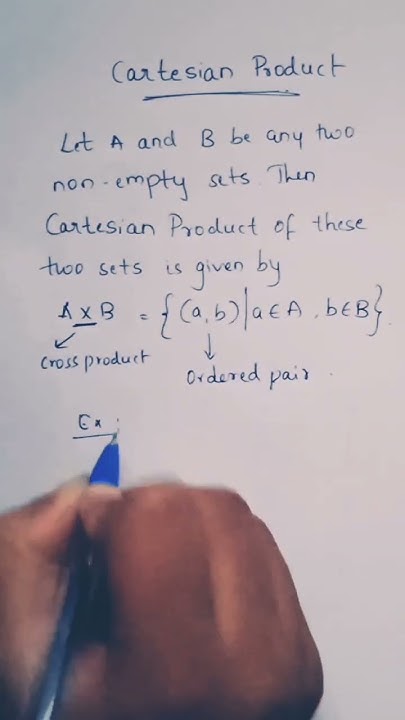 Cartesian Product
Let A and B be any two
non-empty sets. Then
Cartesian Product of these
two sets is given by
A x B = {(a, b) | a ∈ A, b ∈ B}.
Cross product
Ordered pair.
Ex :